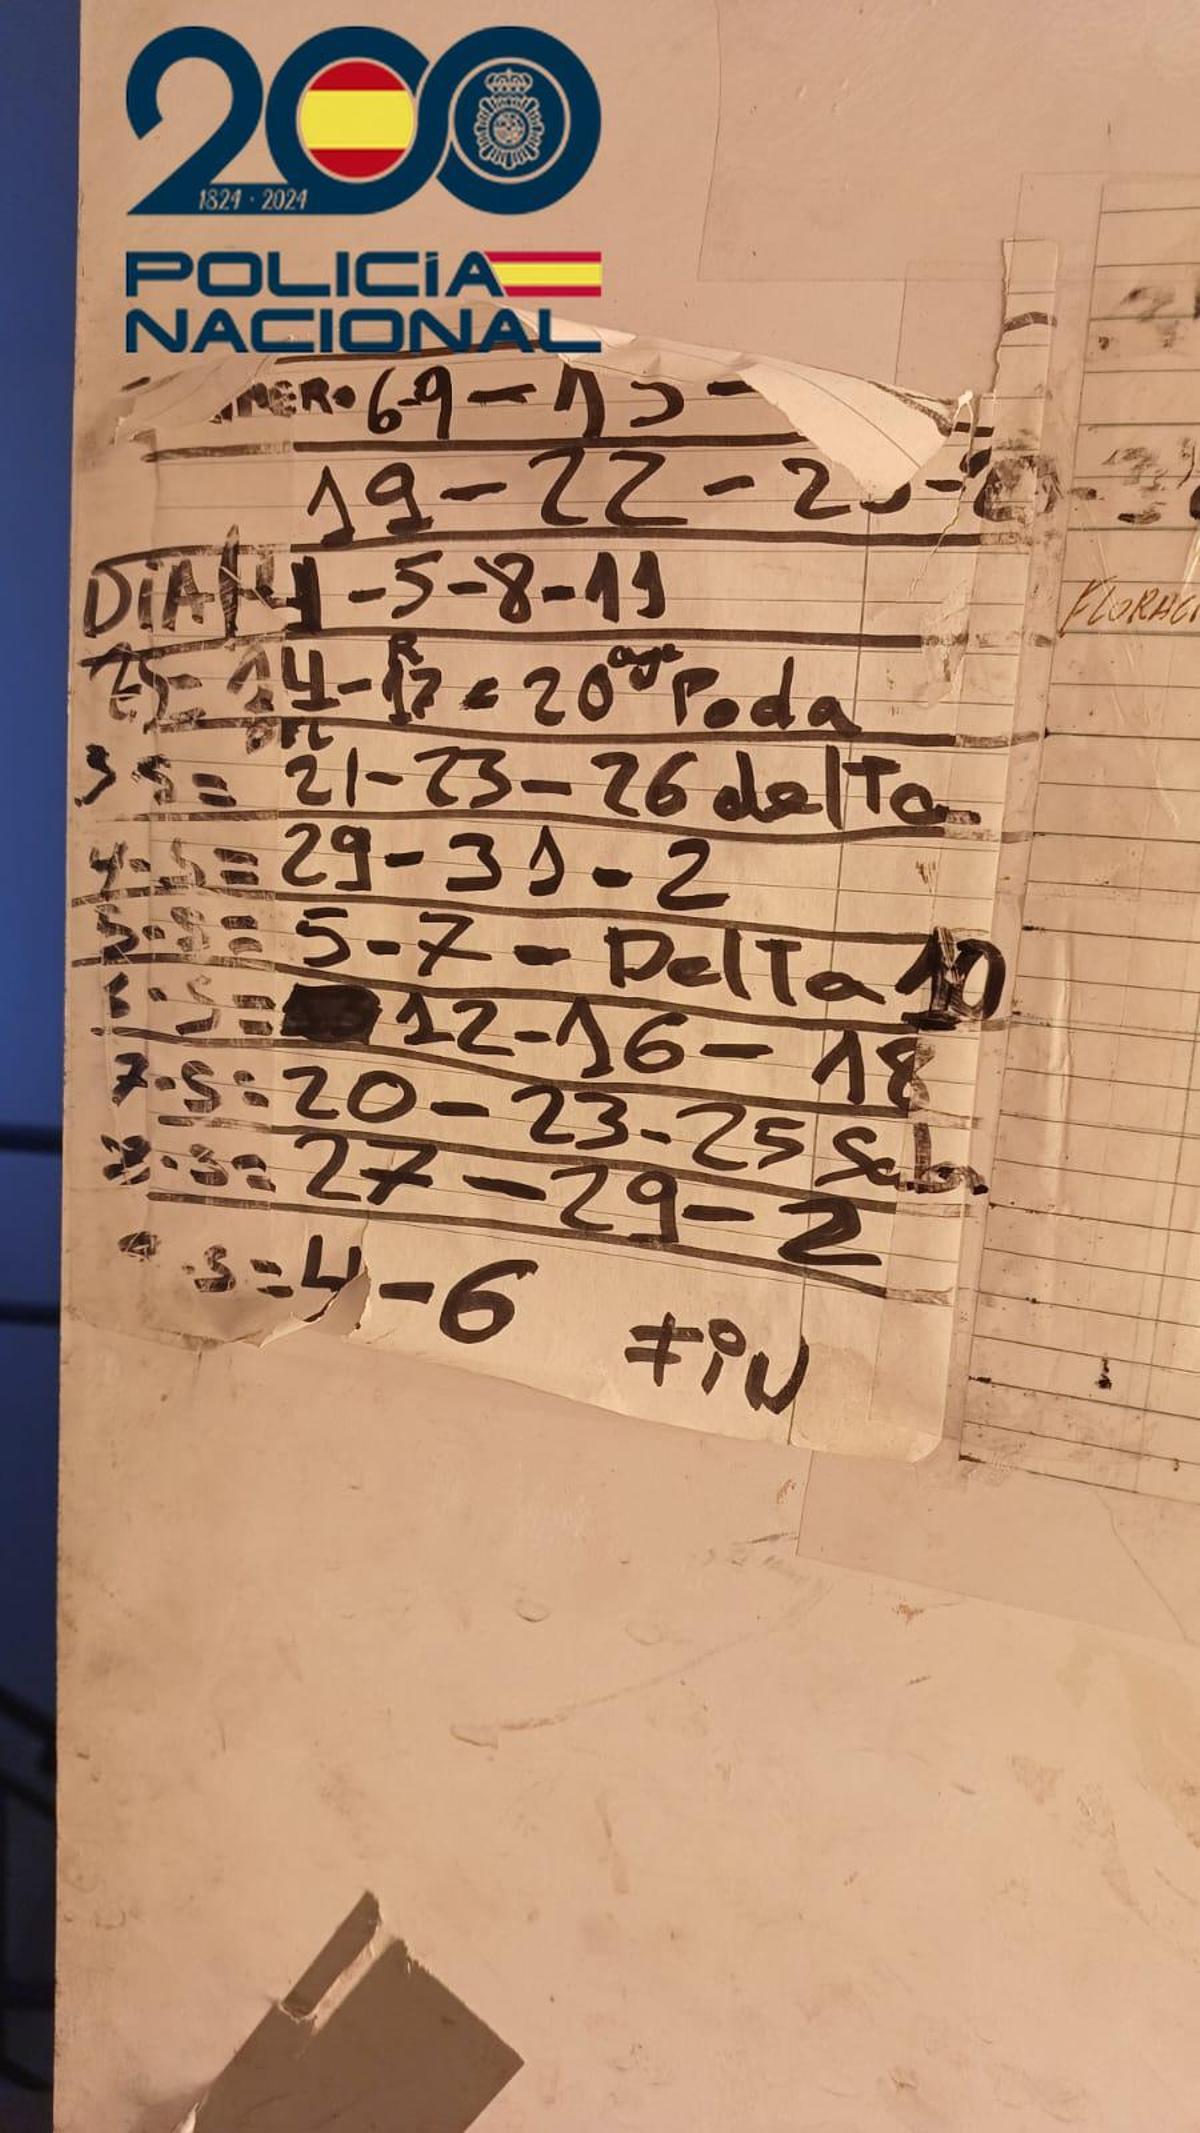 200
1824 · 2024
POLICÍA
NACIONAL
69 - 13 -
19 - 22 - 2
DIA 1 - 5 - 8 - 11
14 - 17 - 20 Poda
3 S = 21 - 23 - 26 delTa
4 - S = 29 - 31 - 2
5 - S = 5 - 7 - DelTa 10
S = 12 - 16 - 18
7 - S = 20 - 23 - 25 Sab
8 - S = 27 - 29 - 2
S = 4 - 6
FiN